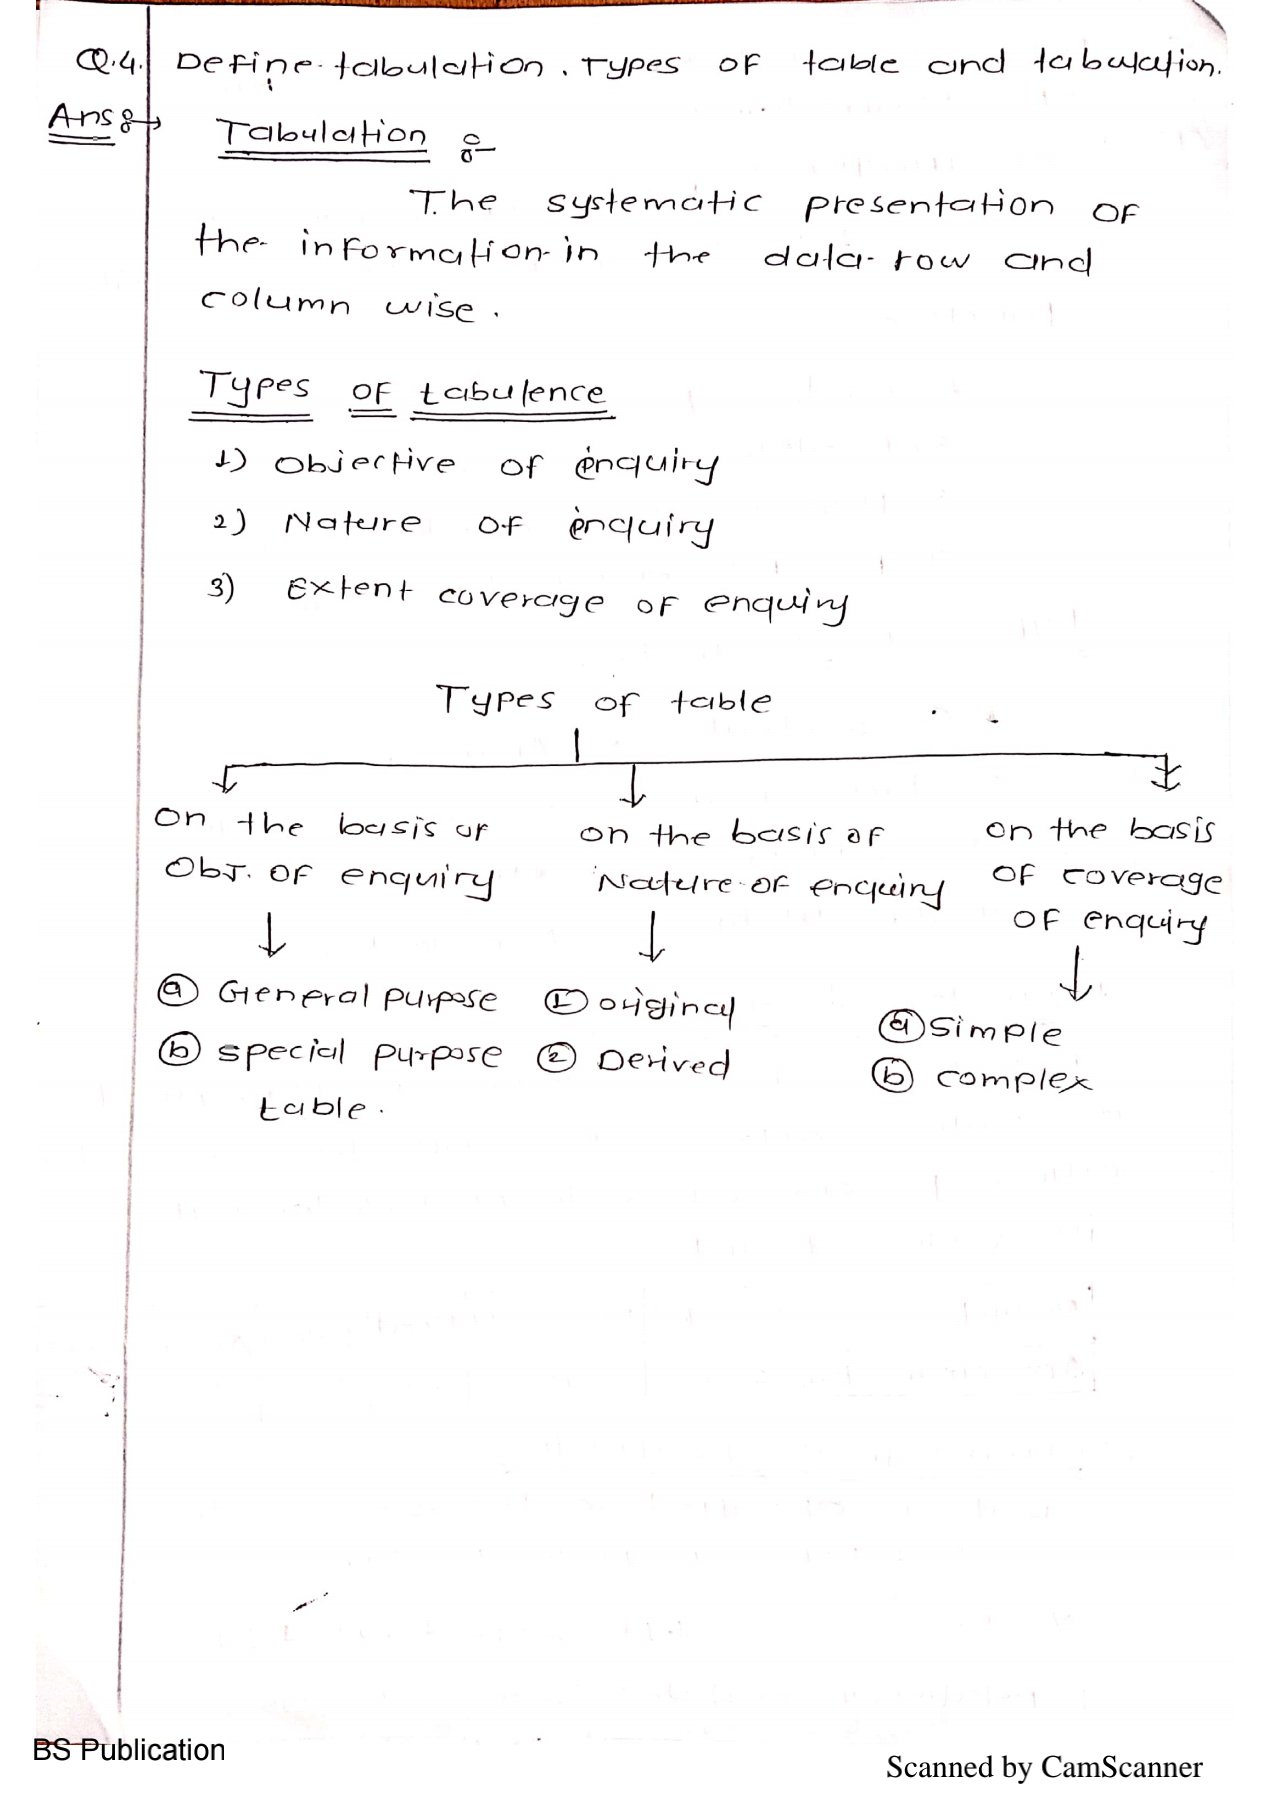 Q.4. Define tabulation. Types of table and tabulation.
Ans :→ Tabulation :-
The systematic presentation of
the information in the data row and
column wise.
Types of tabulence
1) Objective of enquiry
2) Nature of enquiry
3) Extent coverage of enquiry
Types of table
On the basis of
Obj. of enquiry
(a) General purpose
(b) special purpose
table.
on the basis of
Nature of enquiry
(1) original
(2) Derived
on the basis
of coverage
of enquiry
(a) Simple
(b) complex
BS Publication
Scanned by CamScanner